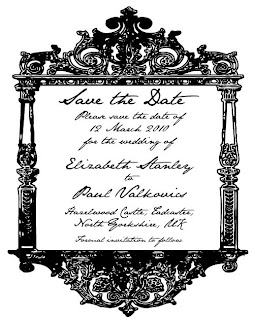 Save the Date
Please save the date of
12 March 2010
for the wedding of
Elizabeth Stanley
to
Paul Valkovics
Hazelwood Castle, Tadcaster,
North Yorkshire, UK
Formal invitation to follow